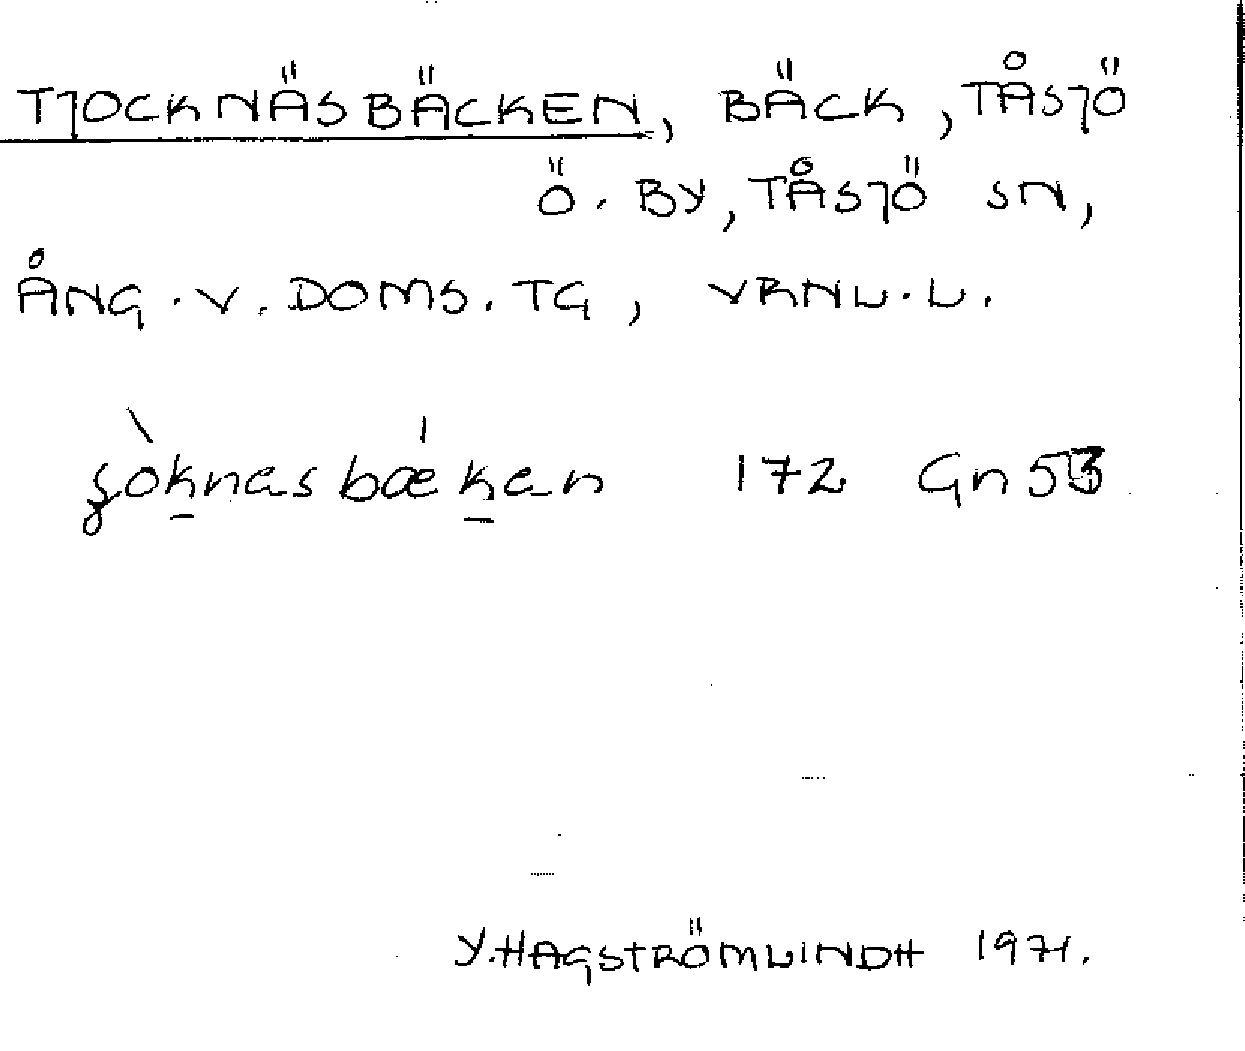 TJOCKNÄSBÄCKEN, BÄCK, TÅSJÖ
Ö. BY, TÅSJÖ SN,
ÅNG. V. DOMS. TG, VRNL. L.
172 Gn 53
Y. HAGSTRÖMLINDH 1971.